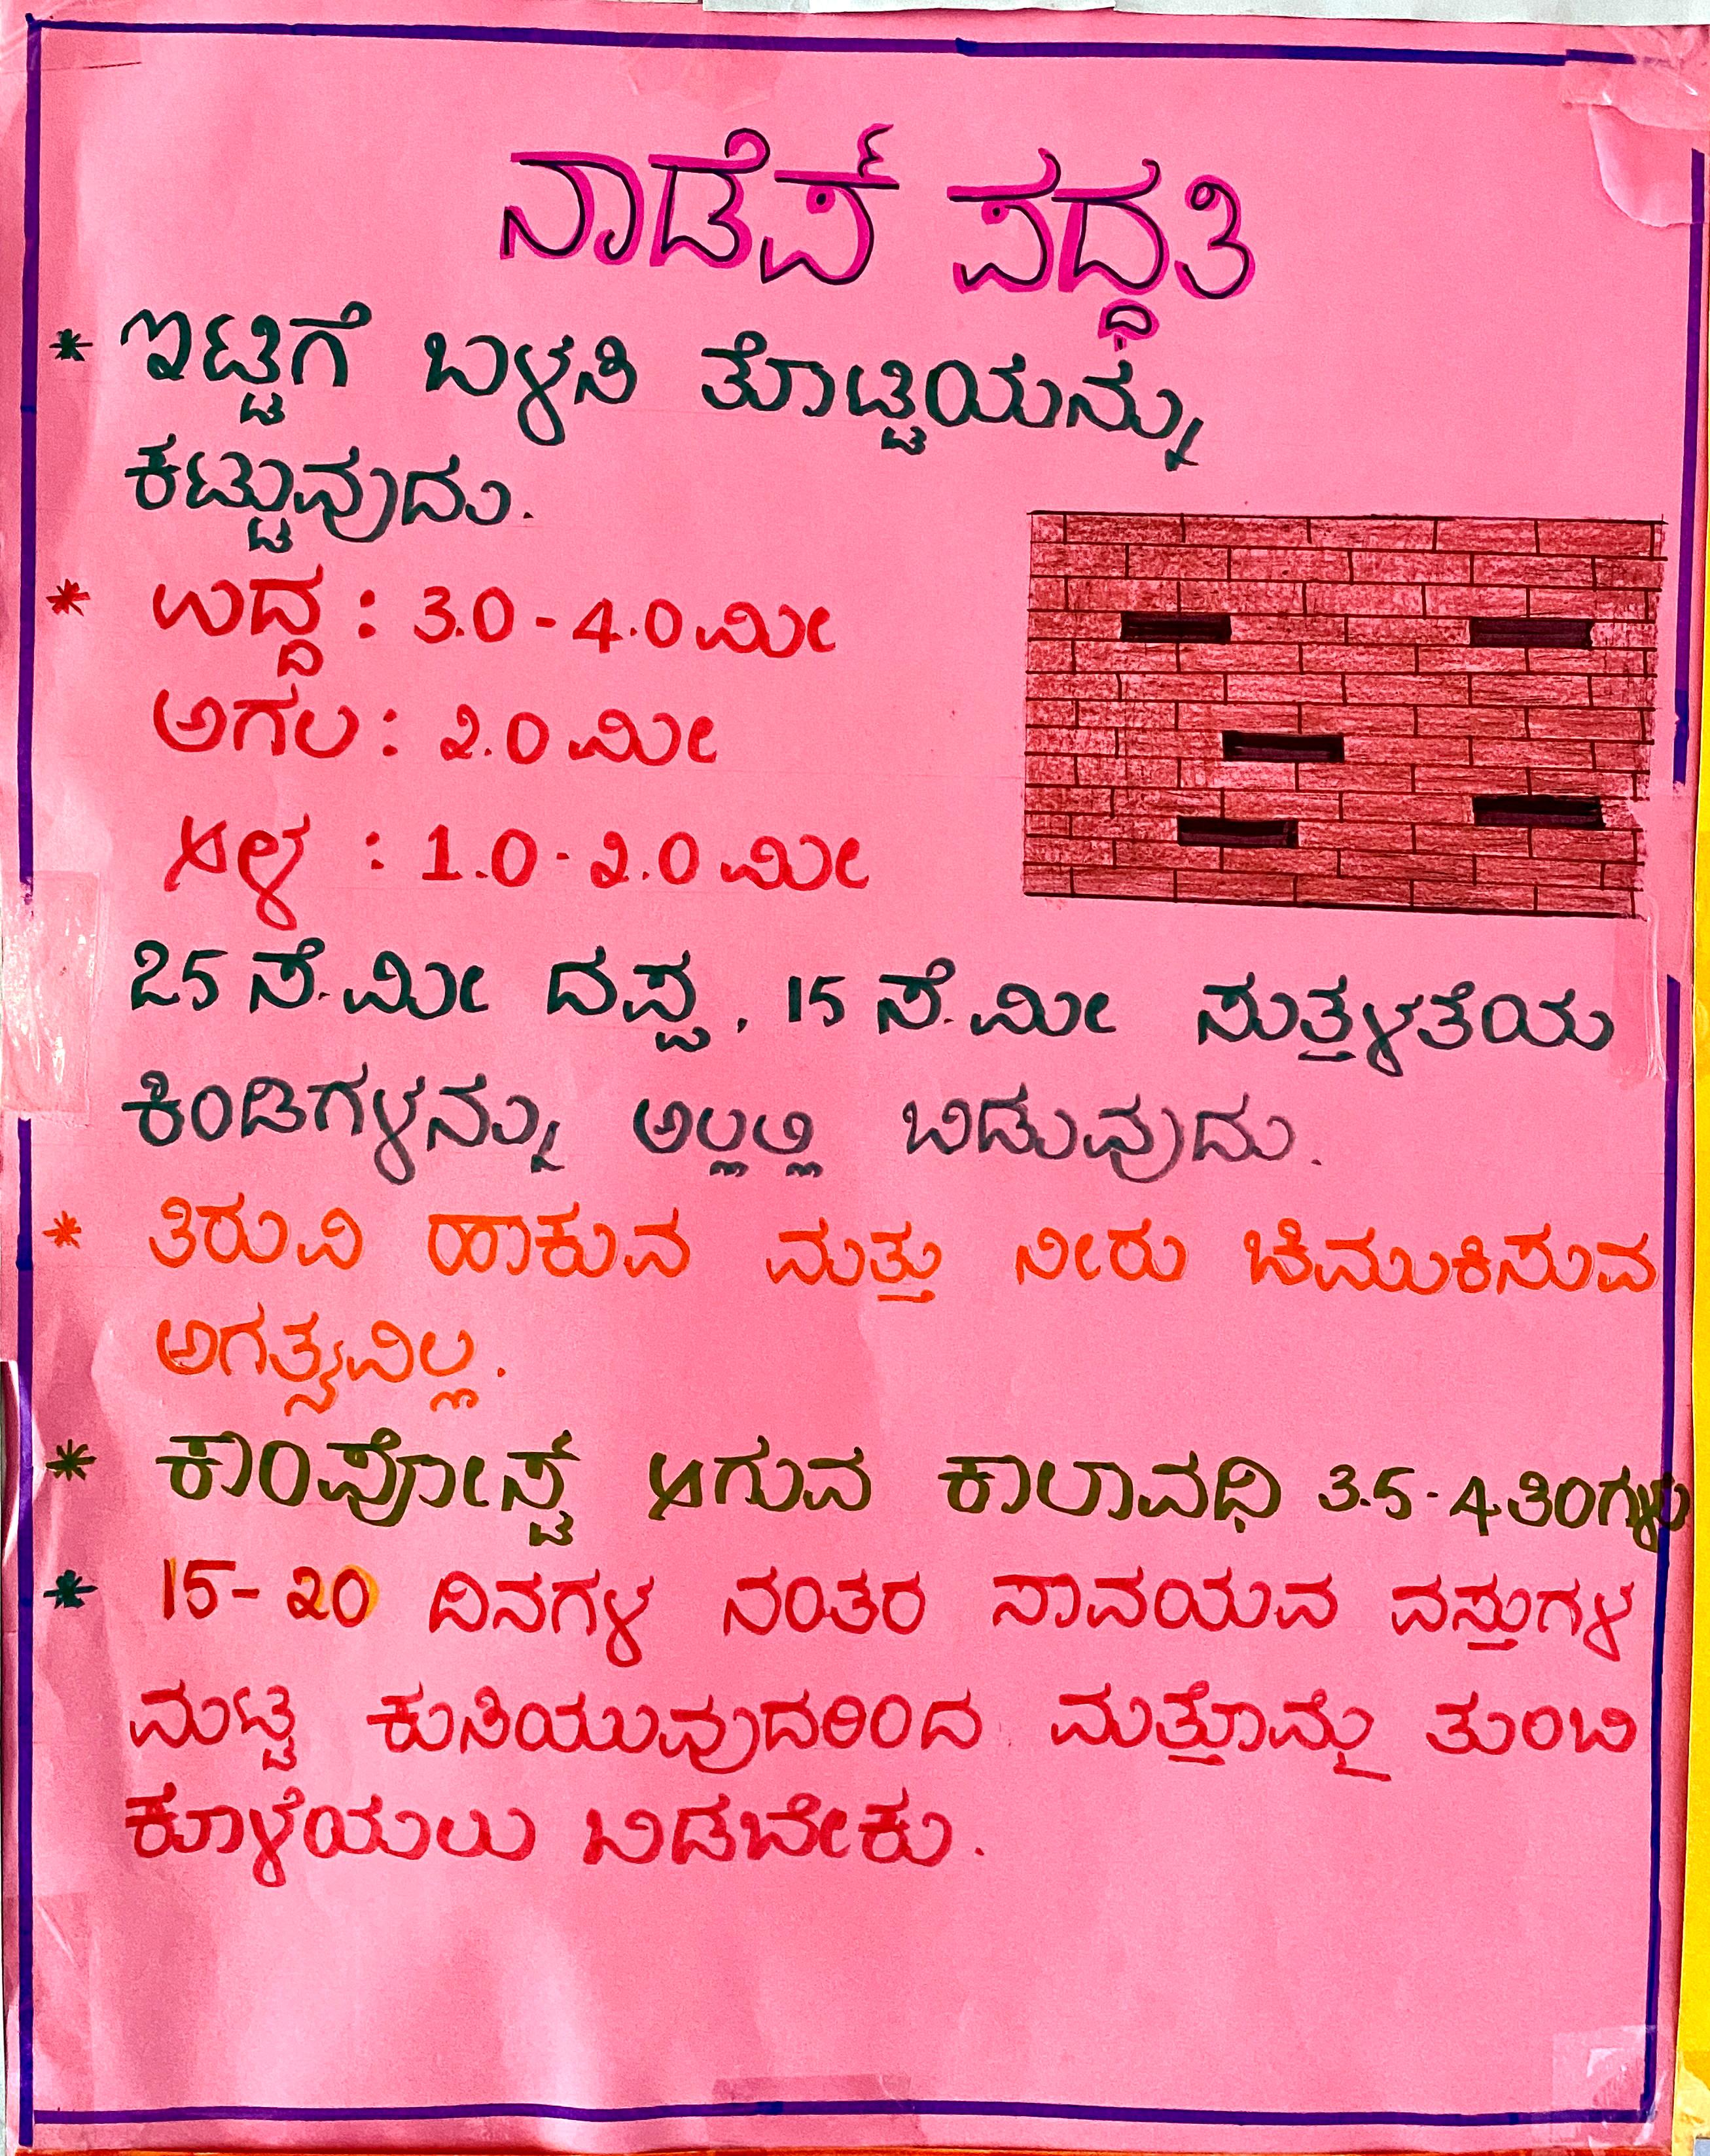 ನಾಡೆಪ್ ಪದ್ಧತಿ
* ಇಟ್ಟಿಗೆ ಬಳಸಿ ತೊಟ್ಟಿಯನ್ನು
ಕಟ್ಟುವುದು.
* ಉದ್ದ : 3.0 - 4.0 ಮೀ
ಅಗಲ : 2.0 ಮೀ
ಆಳ : 1.0 - 2.0 ಮೀ
25 ಸೆ.ಮೀ ದಪ್ಪ, 15 ಸೆ.ಮೀ ಸುತ್ತಳತೆಯ
ಕಿಂಡಿಗಳನ್ನು ಅಲ್ಲಲ್ಲಿ ಬಿಡುವುದು.
* ತಿರುವಿ ಹಾಕುವ ಮತ್ತು ನೀರು ಚಿಮುಕಿಸುವ
ಅಗತ್ಯವಿಲ್ಲ.
* ಕಾಂಪೋಸ್ಟ್ ಆಗುವ ಕಾಲಾವಧಿ 3.5 - 4 ತಿಂಗಳು
* 15 - 20 ದಿನಗಳ ನಂತರ ಸಾವಯವ ವಸ್ತುಗಳ
ಮಟ್ಟ ಕುಸಿಯುವುದರಿಂದ ಮತ್ತೊಮ್ಮೆ ತುಂಬಿ
ಕೊಳೆಯಲು ಬಿಡಬೇಕು.